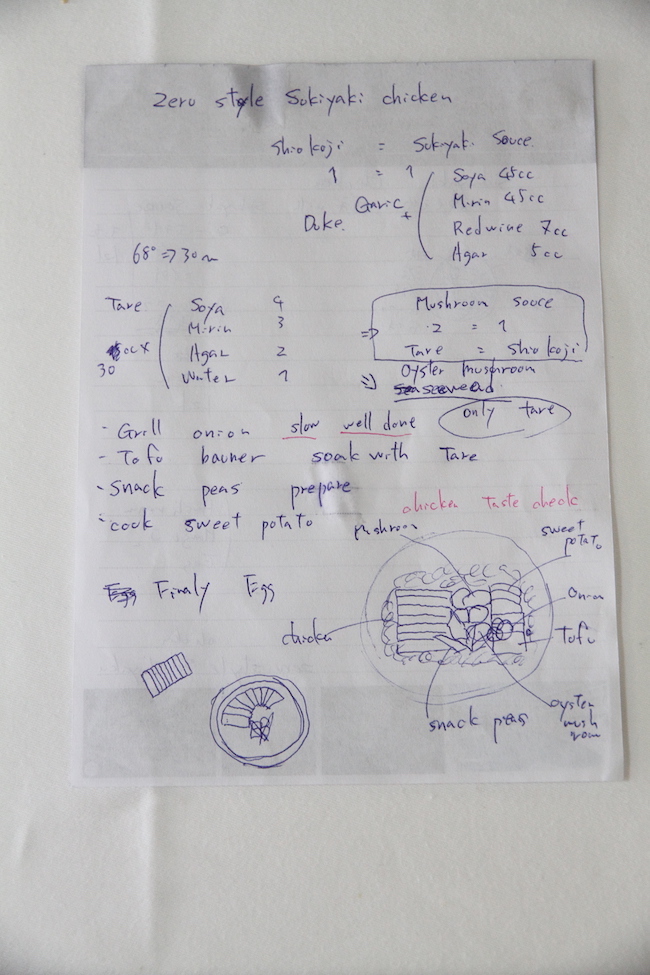 Zero style Sukiyaki chicken
Shio koji = Sukiyaki Souce
1 = 1
Garric +
Duke.
Soya 45cc
Mirin 45cc
Redwine 7cc
Agar 5cc
68° => 30m
Tare
Soya 4
Mirin 3
Agar 2
Water 1
30
=> Mushroom souce
2 = 1
Tare = Shio koji
=> Oyster mushroom
only tare
- Grill onion slow well done
- Tofu bauner soak with Tare
- Snack peas prepare
- cook sweet potato
chicken taste check
Finaly Egg
Mushroom
sweet potato
Onion
Tofu
chicken
snack peas
oyster mush room